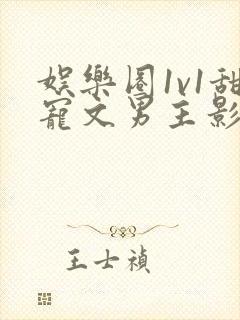 娱樂圈1v1甜
寵文男主影
王士禎